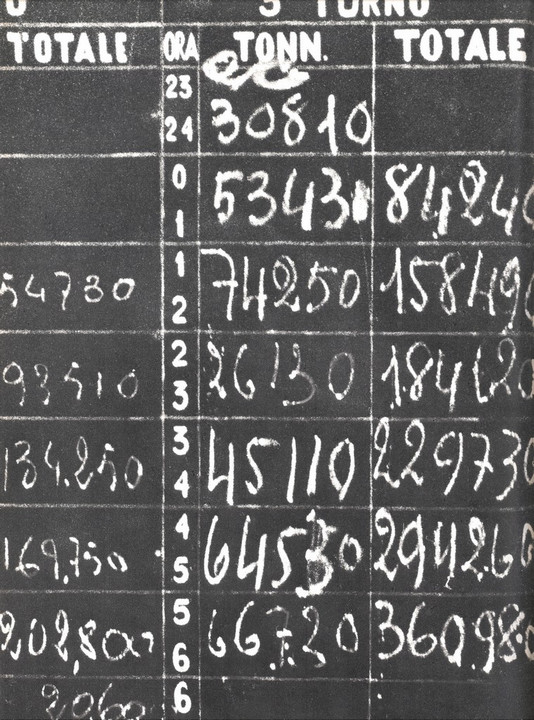 3° TURNO
TOTALE ORA TONN. TOTALE
23
24 30810
0
1 53430 84240
54730 1
2 74250 158490
93510 2
3 26130 184620
134.250 3
4 45110 229730
169.750 4
5 64530 294260
202,800 5
6 66720 360.980
6